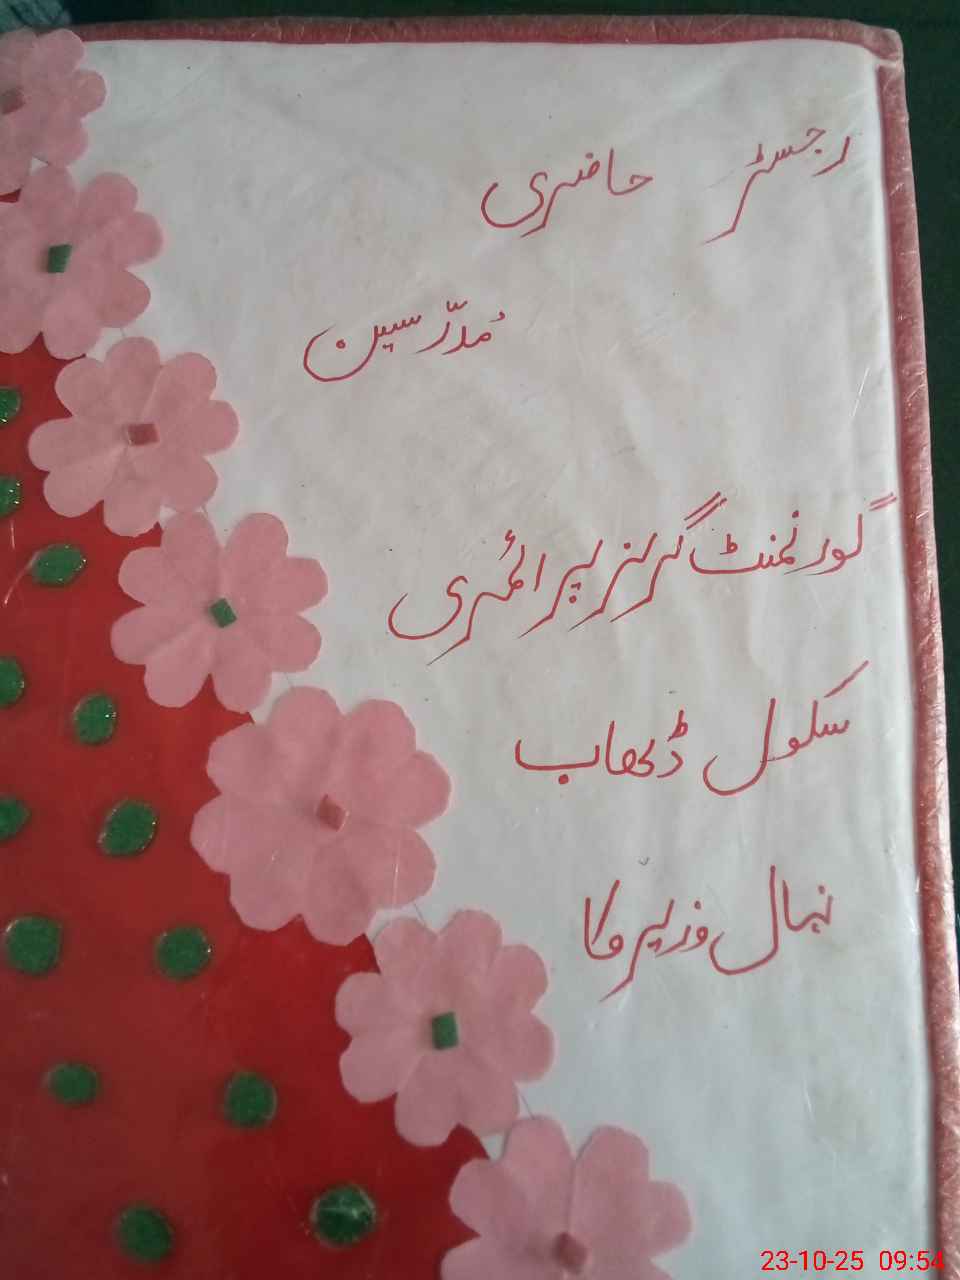 رجسٹر حاضری
مُدرّسین
گورنمنٹ گرلز پرائمری
سکول ڈھاب
نہال وزیرکا
23-10-25 09:54